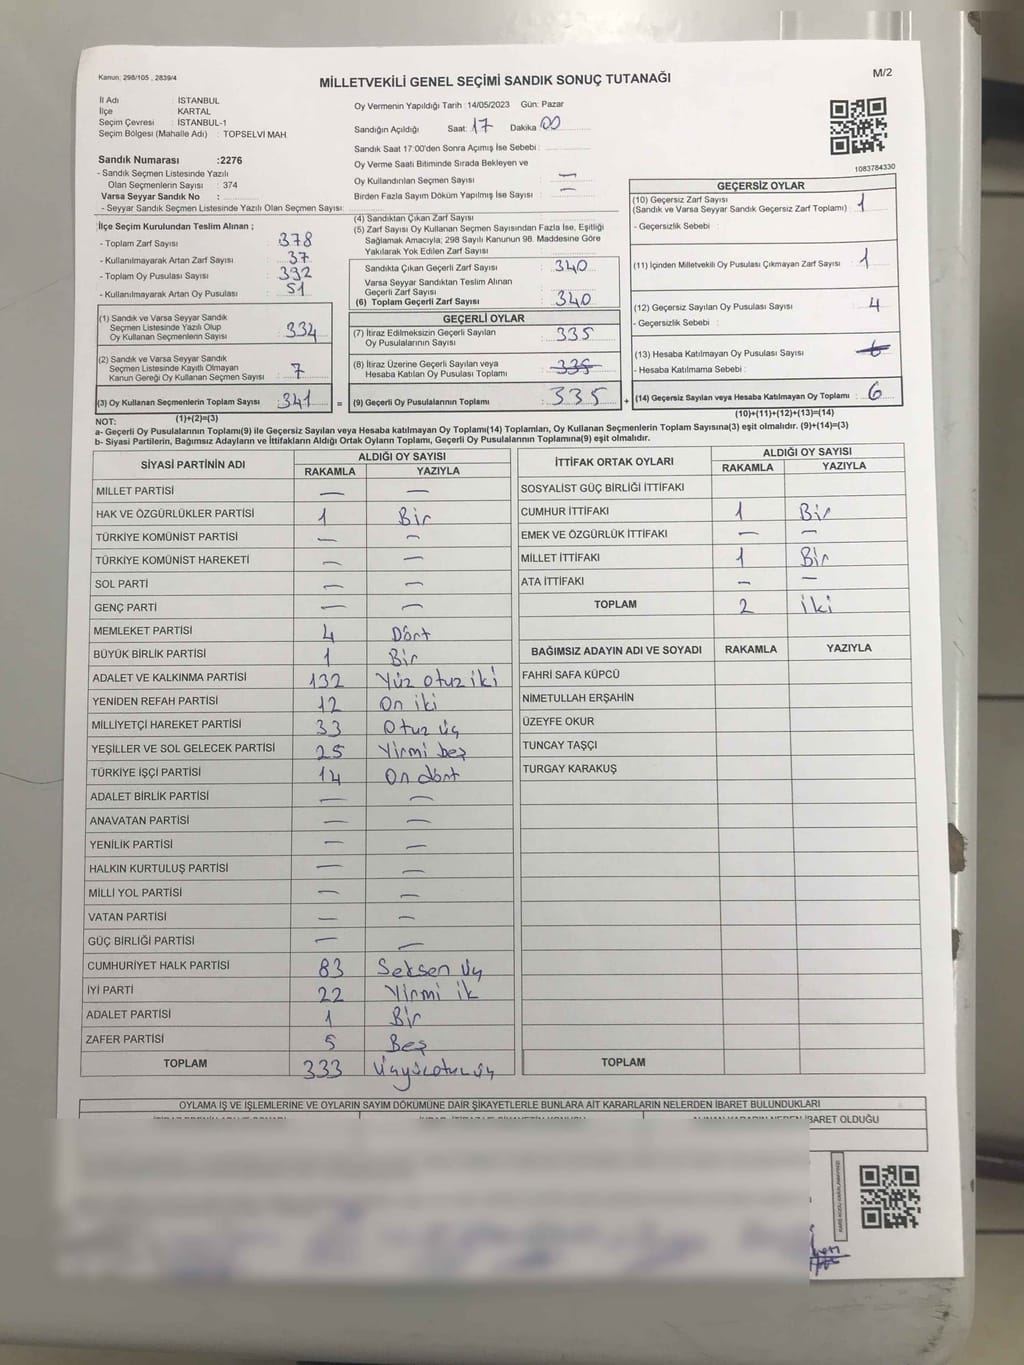 Kanun; 298/105 , 2839/4
MİLLETVEKİLİ GENEL SEÇİMİ SANDIK SONUÇ TUTANAĞI
M/2
İl Adı : İSTANBUL
İlçe : KARTAL
Seçim Çevresi : İSTANBUL-1
Seçim Bölgesi (Mahalle Adı) : TOPSELVİ MAH.
Oy Vermenin Yapıldığı Tarih :14/05/2023 Gün: Pazar
Sandığın Açıldığı Saat: 17 Dakika: 00
Sandık Saat 17:00'den Sonra Açımış İse Sebebi :
Oy Verme Saati Bitiminde Sırada Bekleyen ve
Oy Kullandırılan Seçmen Sayısı : —
Birden Fazla Sayım Döküm Yapılmış İse Sayısı : —
1083784330
Sandık Numarası :2276
- Sandık Seçmen Listesinde Yazılı
Olan Seçmenlerin Sayısı : 374
Varsa Seyyar Sandık No :
- Seyyar Sandık Seçmen Listesinde Yazılı Olan Seçmen Sayısı:
İlçe Seçim Kurulundan Teslim Alınan ;
- Toplam Zarf Sayısı : 378
- Kullanılmayarak Artan Zarf Sayısı : 37
- Toplam Oy Pusulası Sayısı : 392
- Kullanılmayarak Artan Oy Pusulası : 51
(1) Sandık ve Varsa Seyyar Sandık
Seçmen Listesinde Yazılı Olup
Oy Kullanan Seçmenlerin Sayısı : 334
(2) Sandık ve Varsa Seyyar Sandık
Seçmen Listesinde Kayıtlı Olmayan
Kanun Gereği Oy Kullanan Seçmen Sayısı : 7
(3) Oy Kullanan Seçmenlerin Toplam Sayısı : 341
(4) Sandıktan Çıkan Zarf Sayısı :
(5) Zarf Sayısı Oy Kullanan Seçmen Sayısından Fazla İse, Eşitliği
Sağlamak Amacıyla; 298 Sayılı Kanunun 98. Maddesine Göre
Yakılarak Yok Edilen Zarf Sayısı :
Sandıkta Çıkan Geçerli Zarf Sayısı : 340
Varsa Seyyar Sandıktan Teslim Alınan
Geçerli Zarf Sayısı :
(6) Toplam Geçerli Zarf Sayısı : 340
GEÇERLİ OYLAR
(7) İtiraz Edilmeksizin Geçerli Sayılan
Oy Pusulalarının Sayısı : 335
(8) İtiraz Üzerine Geçerli Sayılan veya
Hesaba Katılan Oy Pusulası Toplamı : 335
= (9) Geçerli Oy Pusulalarının Toplamı : 335
GEÇERSİZ OYLAR
(10) Geçersiz Zarf Sayısı
(Sandık ve Varsa Seyyar Sandık Geçersiz Zarf Toplamı) : 1
- Geçersizlik Sebebi :
(11) İçinden Milletvekili Oy Pusulası Çıkmayan Zarf Sayısı : 1
(12) Geçersiz Sayılan Oy Pusulası Sayısı : 4
- Geçersizlik Sebebi :
(13) Hesaba Katılmayan Oy Pusulası Sayısı :
- Hesaba Katılmama Sebebi :
+ (14) Geçersiz Sayılan veya Hesaba Katılmayan Oy Toplamı : 6
NOT: (1)+(2)=(3) (10)+(11)+(12)+(13)=(14)
a- Geçerli Oy Pusulalarının Toplamı(9) ile Geçersiz Sayılan veya Hesaba katılmayan Oy Toplamı(14) Toplamları, Oy Kullanan Seçmenlerin Toplam Sayısına(3) eşit olmalıdır. (9)+(14)=(3)
b- Siyasi Partilerin, Bağımsız Adayların ve İttifakların Aldığı Ortak Oyların Toplamı, Geçerli Oy Pusulalarının Toplamına(9) eşit olmalıdır.
SİYASİ PARTİNİN ADI ALDIĞI OY SAYISI
RAKAMLA YAZIYLA
MİLLET PARTİSİ — —
HAK VE ÖZGÜRLÜKLER PARTİSİ 1 Bir
TÜRKİYE KOMÜNİST PARTİSİ — —
TÜRKİYE KOMÜNİST HAREKETİ — —
SOL PARTİ — —
GENÇ PARTİ — —
MEMLEKET PARTİSİ 4 Dört
BÜYÜK BİRLİK PARTİSİ 1 Bir
ADALET VE KALKINMA PARTİSİ 132 Yüz otuz iki
YENİDEN REFAH PARTİSİ 12 On iki
MİLLİYETÇİ HAREKET PARTİSİ 33 Otuz üç
YEŞİLLER VE SOL GELECEK PARTİSİ 25 Yirmi beş
TÜRKİYE İŞÇİ PARTİSİ 14 On dört
ADALET BİRLİK PARTİSİ — —
ANAVATAN PARTİSİ — —
YENİLİK PARTİSİ — —
HALKIN KURTULUŞ PARTİSİ — —
MİLLİ YOL PARTİSİ — —
VATAN PARTİSİ — —
GÜÇ BİRLİĞİ PARTİSİ — —
CUMHURİYET HALK PARTİSİ 83 Seksen üç
İYİ PARTİ 22 Yirmi ik
ADALET PARTİSİ 1 Bir
ZAFER PARTİSİ 5 Beş
TOPLAM 333 Üçyüzotuzüç
İTTİFAK ORTAK OYLARI ALDIĞI OY SAYISI
RAKAMLA YAZIYLA
SOSYALİST GÜÇ BİRLİĞİ İTTİFAKI
CUMHUR İTTİFAKI 1 Bir
EMEK VE ÖZGÜRLÜK İTTİFAKI — —
MİLLET İTTİFAKI 1 Bir
ATA İTTİFAKI — —
TOPLAM 2 iki
BAĞIMSIZ ADAYIN ADI VE SOYADI RAKAMLA YAZIYLA
FAHRİ SAFA KÜPCÜ
NİMETULLAH ERŞAHİN
ÜZEYFE OKUR
TUNCAY TAŞÇI
TURGAY KARAKUŞ
TOPLAM
OYLAMA İŞ VE İŞLEMLERİNE VE OYLARIN SAYIM DÖKÜMÜNE DAİR ŞİKAYETLERLE BUNLARA AİT KARARLARIN NELERDEN İBARET BULUNDUKLARI
İBARET OLDUĞU